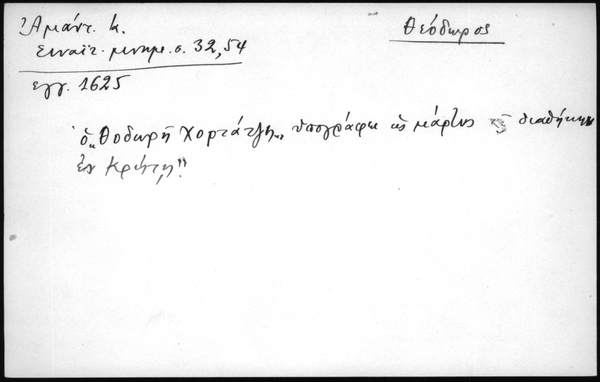 Ἀμάντ. Κ.
Σιναϊτ. μνημ. σ. 32, 54
Θεόδωρος
εγγ. 1625
ὁ „Θοδωρῆ Χορτάτζη„ ὑπογράφει ὡς μάρτυς τῆς διαθήκης
ἐν Κρήτῃ"